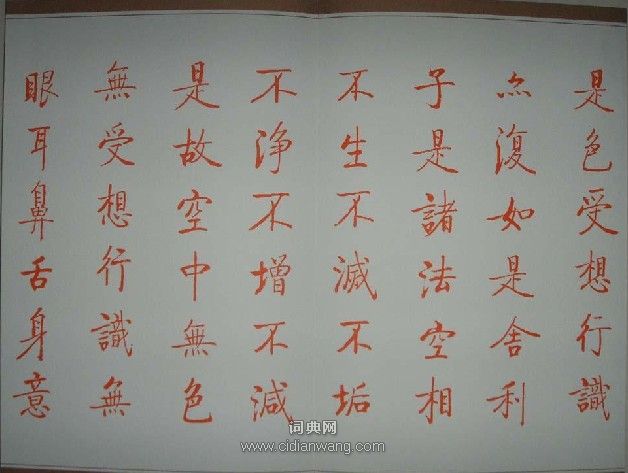 是色受想行識
亦復如是舍利
子是諸法空相
不生不滅不垢
不淨不增不減
是故空中無色
無受想行識無
眼耳鼻舌身意
词典网
www.cidianwang.com